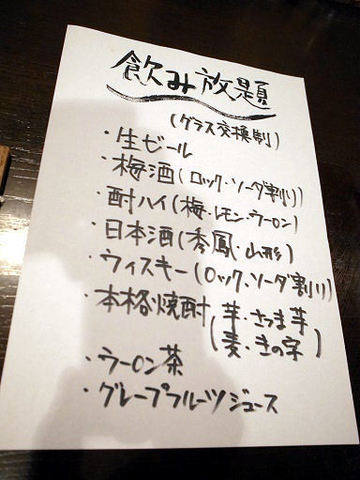 飲み放題
(グラス交換制)
・生ビール
・梅酒(ロック・ソーダ割り)
・酎ハイ(梅・レモン・ウーロン)
・日本酒(秀鳳・山形)
・ウィスキー(ロック、ソーダ割り)
・本格焼酎(芋・さつま芋
麦・きの字)
・ウーロン茶
・グレープフルーツジュース